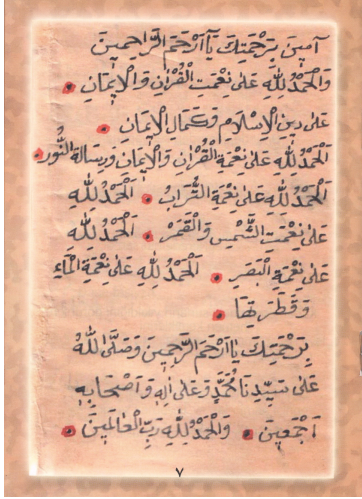 آمِينَ بِرَحْمَتِكَ يَآ اَرْحَمَ الرَّاحِمِينَ
وَالْحَمْدُ لِلّٰهِ عَلٰى نِعْمَتِ الْقُرْاٰنِ وَالْاِيمَانِ
عَلٰى دِينِ الْاِسْلَامِ وَكَمَالِ الْاِيمَانِ
اَلْحَمْدُ لِلّٰهِ عَلٰى نِعْمَةِ الْقُرْاٰنِ وَالْاِيمَانِ وَرِسَالَةِ النُّورِ
اَلْحَمْدُ لِلّٰهِ عَلٰى نِعْمَةِ التُّرَابِ اَلْحَمْدُ لِلّٰهِ
عَلٰى نِعْمَتِ الشَّمْسِ وَالْقَمَرِ اَلْحَمْدُ لِلّٰهِ
عَلٰى نِعْمَةِ الْبَصَرِ اَلْحَمْدُ لِلّٰهِ عَلٰى نِعْمَةِ الْمَاءِ
وَقَطَرَتِهَا
بِرَحْمَتِكَ يَا اَرْحَمَ الرَّحِمِينَ وَصَلَّى اللّٰهُ
عَلٰى سَيِّدِنَا مُحَمَّدٍ وَعَلٰى اٰلِهِ وَاَصْحَابِهِ
اَجْمَعِينَ وَالْحَمْدُ لِلّٰهِ رَبِّ الْعَالَمِينَ
٧